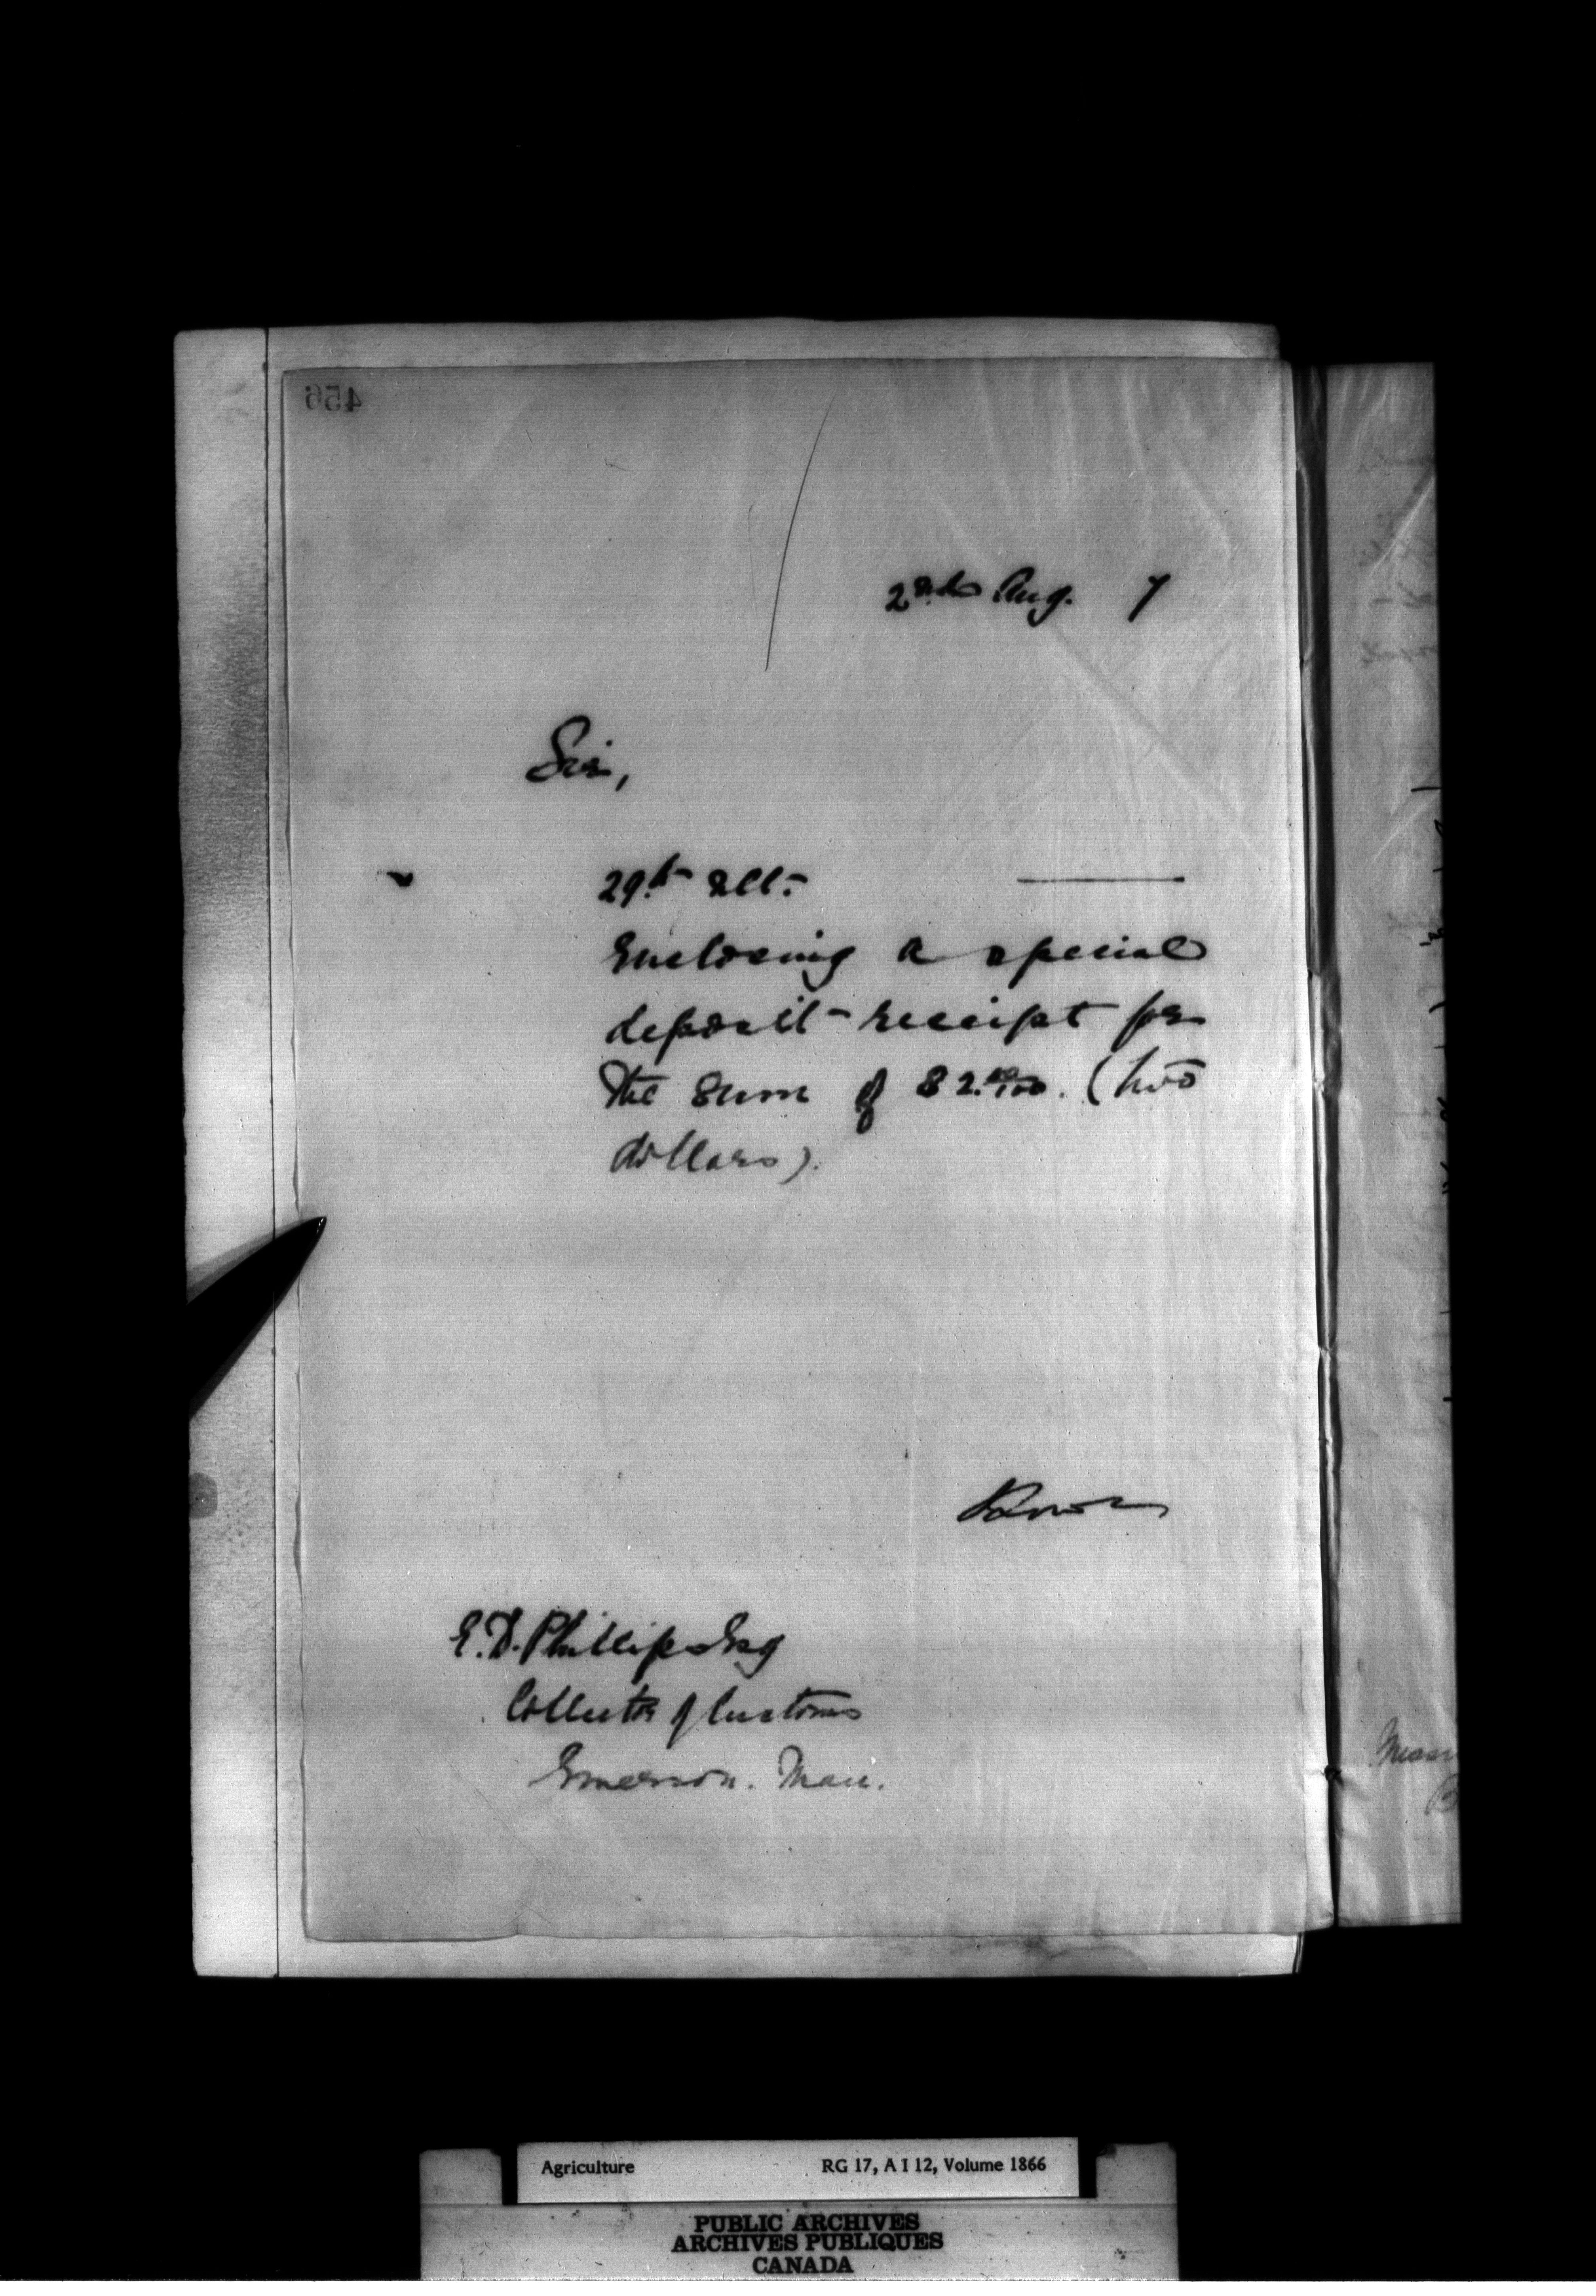 456
2nd Aug. 7
Sir,
29th ult.
Enclosing a special
deposit receipt for
the sum of $2.00/100. (two
dollars).
E. D. Phillips Esq
Collector of Customs
Emerson. Man.
Agriculture RG 17, A I 12, Volume 1866
PUBLIC ARCHIVES
ARCHIVES PUBLIQUES
CANADA